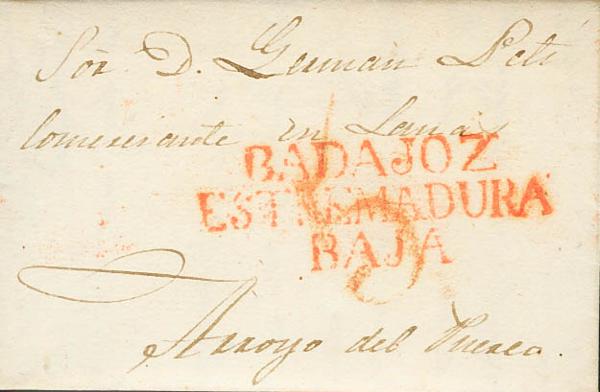 Sör. D. German Peti
Comerciante en Lanas
BADAJOZ
ESTREMADURA
BAJA
5
Arroyo del Puerco.